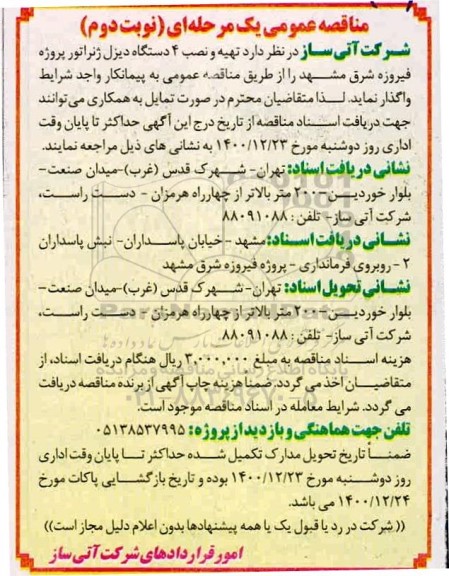 مناقصه عمومی یک مرحله‌ای (نوبت دوم)
شرکت آتی ساز در نظر دارد تهیه و نصب ۴ دستگاه دیزل ژنراتور پروژه
فیروزه شرق مشهد را از طریق مناقصه عمومی به پیمانکار واجد شرایط
واگذار نماید. لذا متقاضیان محترم در صورت تمایل به همکاری می‌توانند
جهت دریافت اسناد مناقصه از تاریخ درج این آگهی حداکثر تا پایان وقت
اداری روز دوشنبه مورخ ۱۴۰۰/۱۲/۲۳ به نشانی های ذیل مراجعه نمایند.
نشانی دریافت اسناد: تهران- شهرک قدس (غرب)-میدان صنعت-
بلوار خوردین-۲۰۰ متر بالاتر از چهارراه هرمزان - دست راست،
شرکت آتی ساز- تلفن: ۸۸۰۹۱۰۸۸
نشانی دریافت اسناد: مشهد - خیابان پاسداران- نبش پاسداران
۲ - روبروی فرمانداری - پروژه فیروزه شرق مشهد
نشانی تحویل اسناد: تهران-شهرک قدس (غرب)-میدان صنعت-
بلوار خوردین-۲۰۰ متر بالاتر از چهارراه هرمزان - دست راست،
شرکت آتی ساز- تلفن: ۸۸۰۹۱۰۸۸
هزینه اسناد مناقصه به مبلغ ۳,۰۰۰,۰۰۰ ریال هنگام دریافت اسناد، از
متقاضیان اخذ می گردد. ضمنا هزینه چاپ آگهی از برنده مناقصه دریافت
می گردد. شرایط معامله در اسناد مناقصه موجود است.
تلفن جهت هماهنگی و بازدید از پروژه: ۰۵۱۳۸۵۳۷۹۹۵
ضمناً تاریخ تحویل مدارک تکمیل شده حداکثر تا پایان وقت اداری
روز دوشنبه مورخ ۱۴۰۰/۱۲/۲۳ بوده و تاریخ بازگشایی پاکات مورخ
۱۴۰۰/۱۲/۲۴ می باشد.
((شرکت در رد یا قبول یک یا همه پیشنهادها بدون اعلام دلیل مجاز است))
امور قراردادهای شرکت آتی ساز